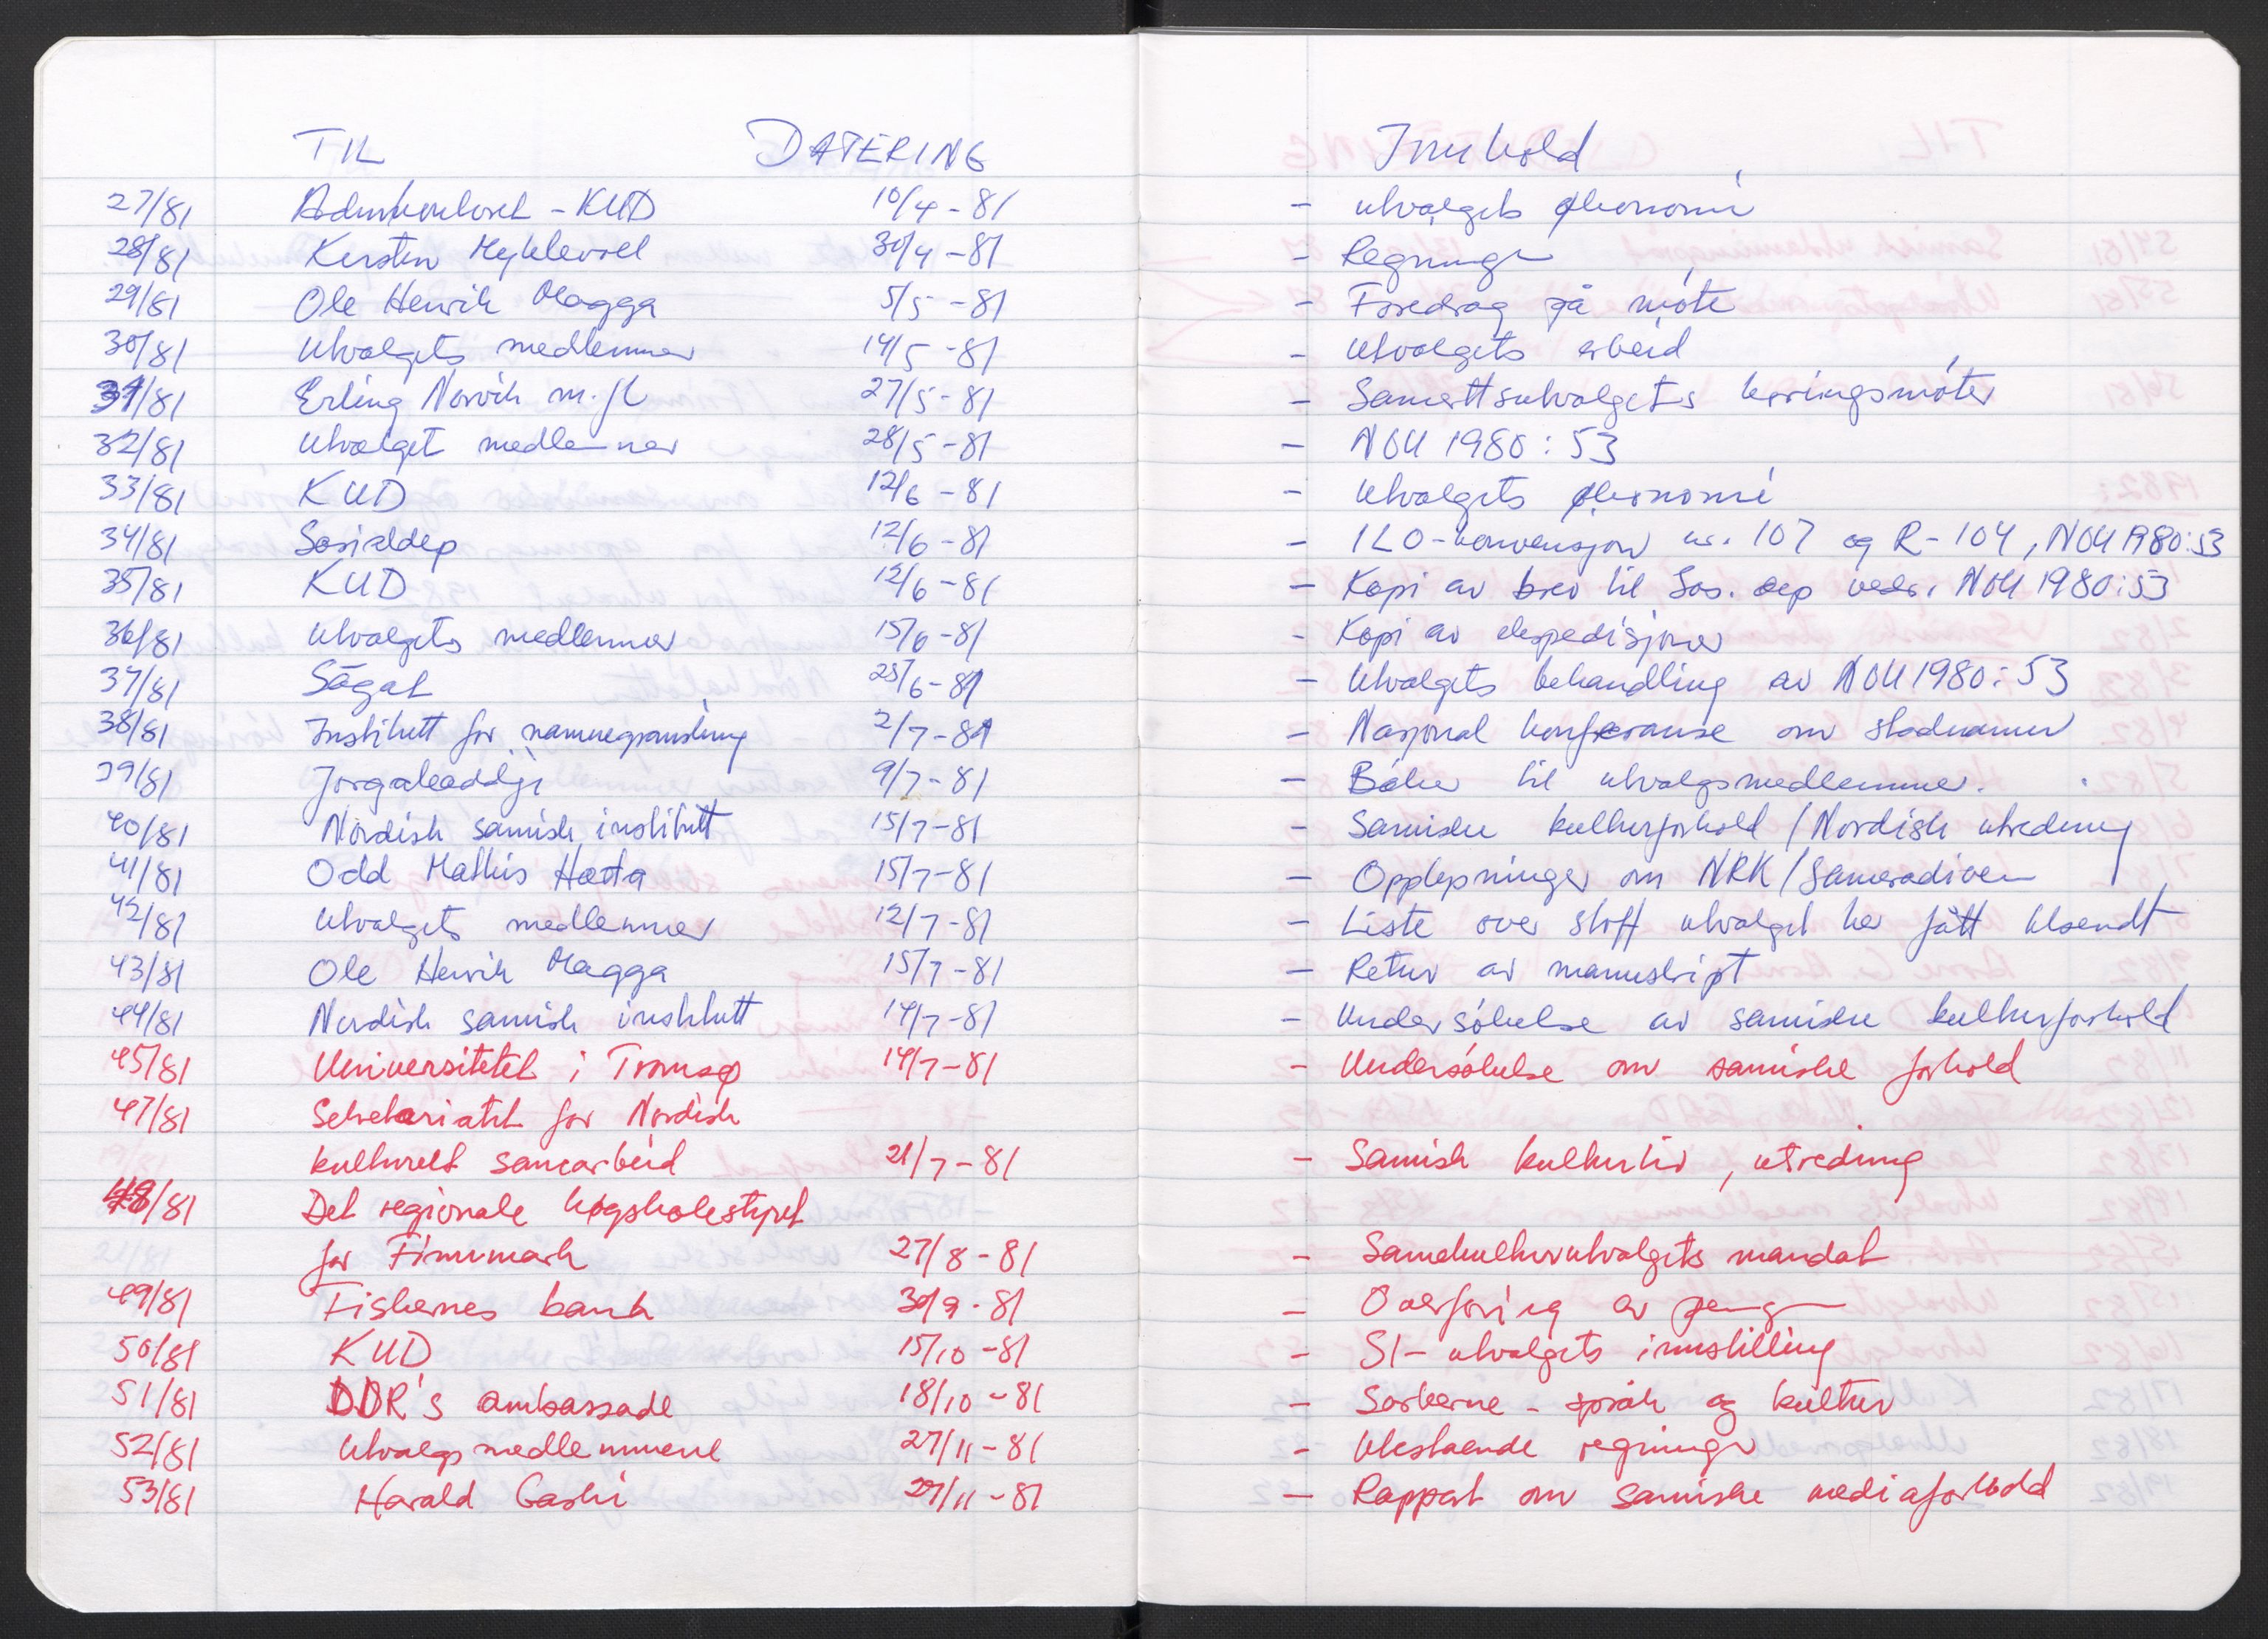 TIL DATERING Innhold
27/81 Admkontoret - KUD 10/4-81 - utvalgets økonomi
28/81 Kirsten Myklevoll 30/4-81 - Regninger
29/81 Ole Henrik Magga 5/5-81 - Foredrag på møte
30/81 Utvalgets medlemmer 14/5-81 - Utvalgets arbeid
31/81 Erling Norvik m.fl 27/5-81 - Samerettsutvalgets høringsmøter
32/81 Utvalget medlemmer 28/5-81 - NOU 1980:53
33/81 KUD 12/6-81 - Utvalgets økonomi
34/81 Sosialdep 12/6-81 - ILO-konvensjon nr. 107 og R-104, NOU 1980:53
35/81 KUD 12/6-81 - Kopi av brev til Sos. dep vedr. NOU 1980:53
36/81 Utvalgets medlemmer 15/6-81 - Kopi av ekspedisjoner
37/81 Ságat 25/6-81 - Utvalgets behandling av NOU 1980:53
38/81 Institutt for namnegransking 2/7-81 - Nasjonal konferanse om stadnamn
39/81 Jorgaleaddji 9/7-81 - Bøker til utvalgsmedlemmer.
40/81 Nordisk samisk institutt 15/7-81 - Samiske kulturforhold / Nordisk utredning
41/81 Odd Mathis Hætta 15/7-81 - Opplysninger om NRK/Sameradioen
42/81 Utvalgets medlemmer 12/7-81 - Liste over stoff utvalget har fått tilsendt
43/81 Ole Henrik Magga 15/7-81 - Retur av manuskript
44/81 Nordisk samisk institutt 14/7-81 - Undersøkelse av samiske kulturforhold
45/81 Universitetet i Tromsø 14/7-81 - Undersøkelse om samiske forhold
47/81 Sekretariatet for Nordisk
kulturelt samarbeid 21/7-81 - Samisk kulturliv, utredning
48/81 Det regionale høgskolestyret
for Finnmark 27/8-81 - Samekulturutvalgets mandat
49/81 Fiskernes bank 30/9-81 - Overføring av penger
50/81 KUD 15/10-81 - SI-utvalgets innstilling
51/81 DDR's ambassade 18/10-81 - Sorberne - språk og kultur
52/81 Utvalgsmedlemmene 27/11-81 - Utestående regninger
53/81 Harald Gaski 27/11-81 - Rapport om samiske mediaforhold